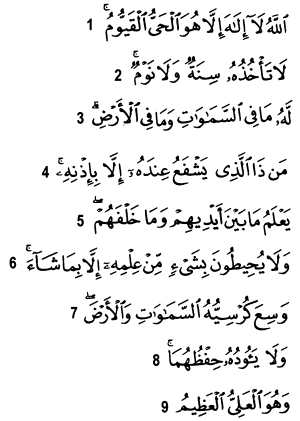 اللَّهُ لَآ إِلَٰهَ إِلَّا هُوَ الْحَيُّ الْقَيُّومُ ۚ 1
لَا تَأْخُذُهُۥ سِنَةٌ وَلَا نَوْمٌ ۚ 2
لَّهُۥ مَا فِي السَّمَٰوَٰتِ وَمَا فِي الْأَرْضِ ۗ 3
مَن ذَا الَّذِي يَشْفَعُ عِندَهُۥٓ إِلَّا بِإِذْنِهِۦ ۚ 4
يَعْلَمُ مَا بَيْنَ أَيْدِيهِمْ وَمَا خَلْفَهُمْ ۖ 5
وَلَا يُحِيطُونَ بِشَيْءٍ مِّنْ عِلْمِهِۦٓ إِلَّا بِمَا شَآءَ ۚ 6
وَسِعَ كُرْسِيُّهُ السَّمَٰوَٰتِ وَالْأَرْضَ ۖ 7
وَلَا يَـُٔودُهُۥ حِفْظُهُمَا ۚ 8
وَهُوَ الْعَلِيُّ الْعَظِيمُ 9